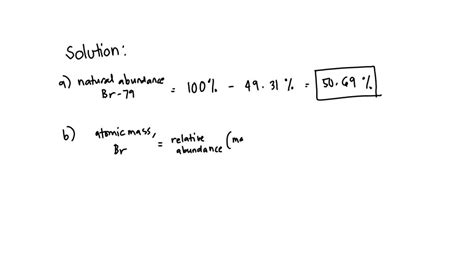 Solution:
a) natural abundance
Br-79 = 100% - 49.31% = 50.69%
b) atomic mass,
Br = relative
abundance (ma